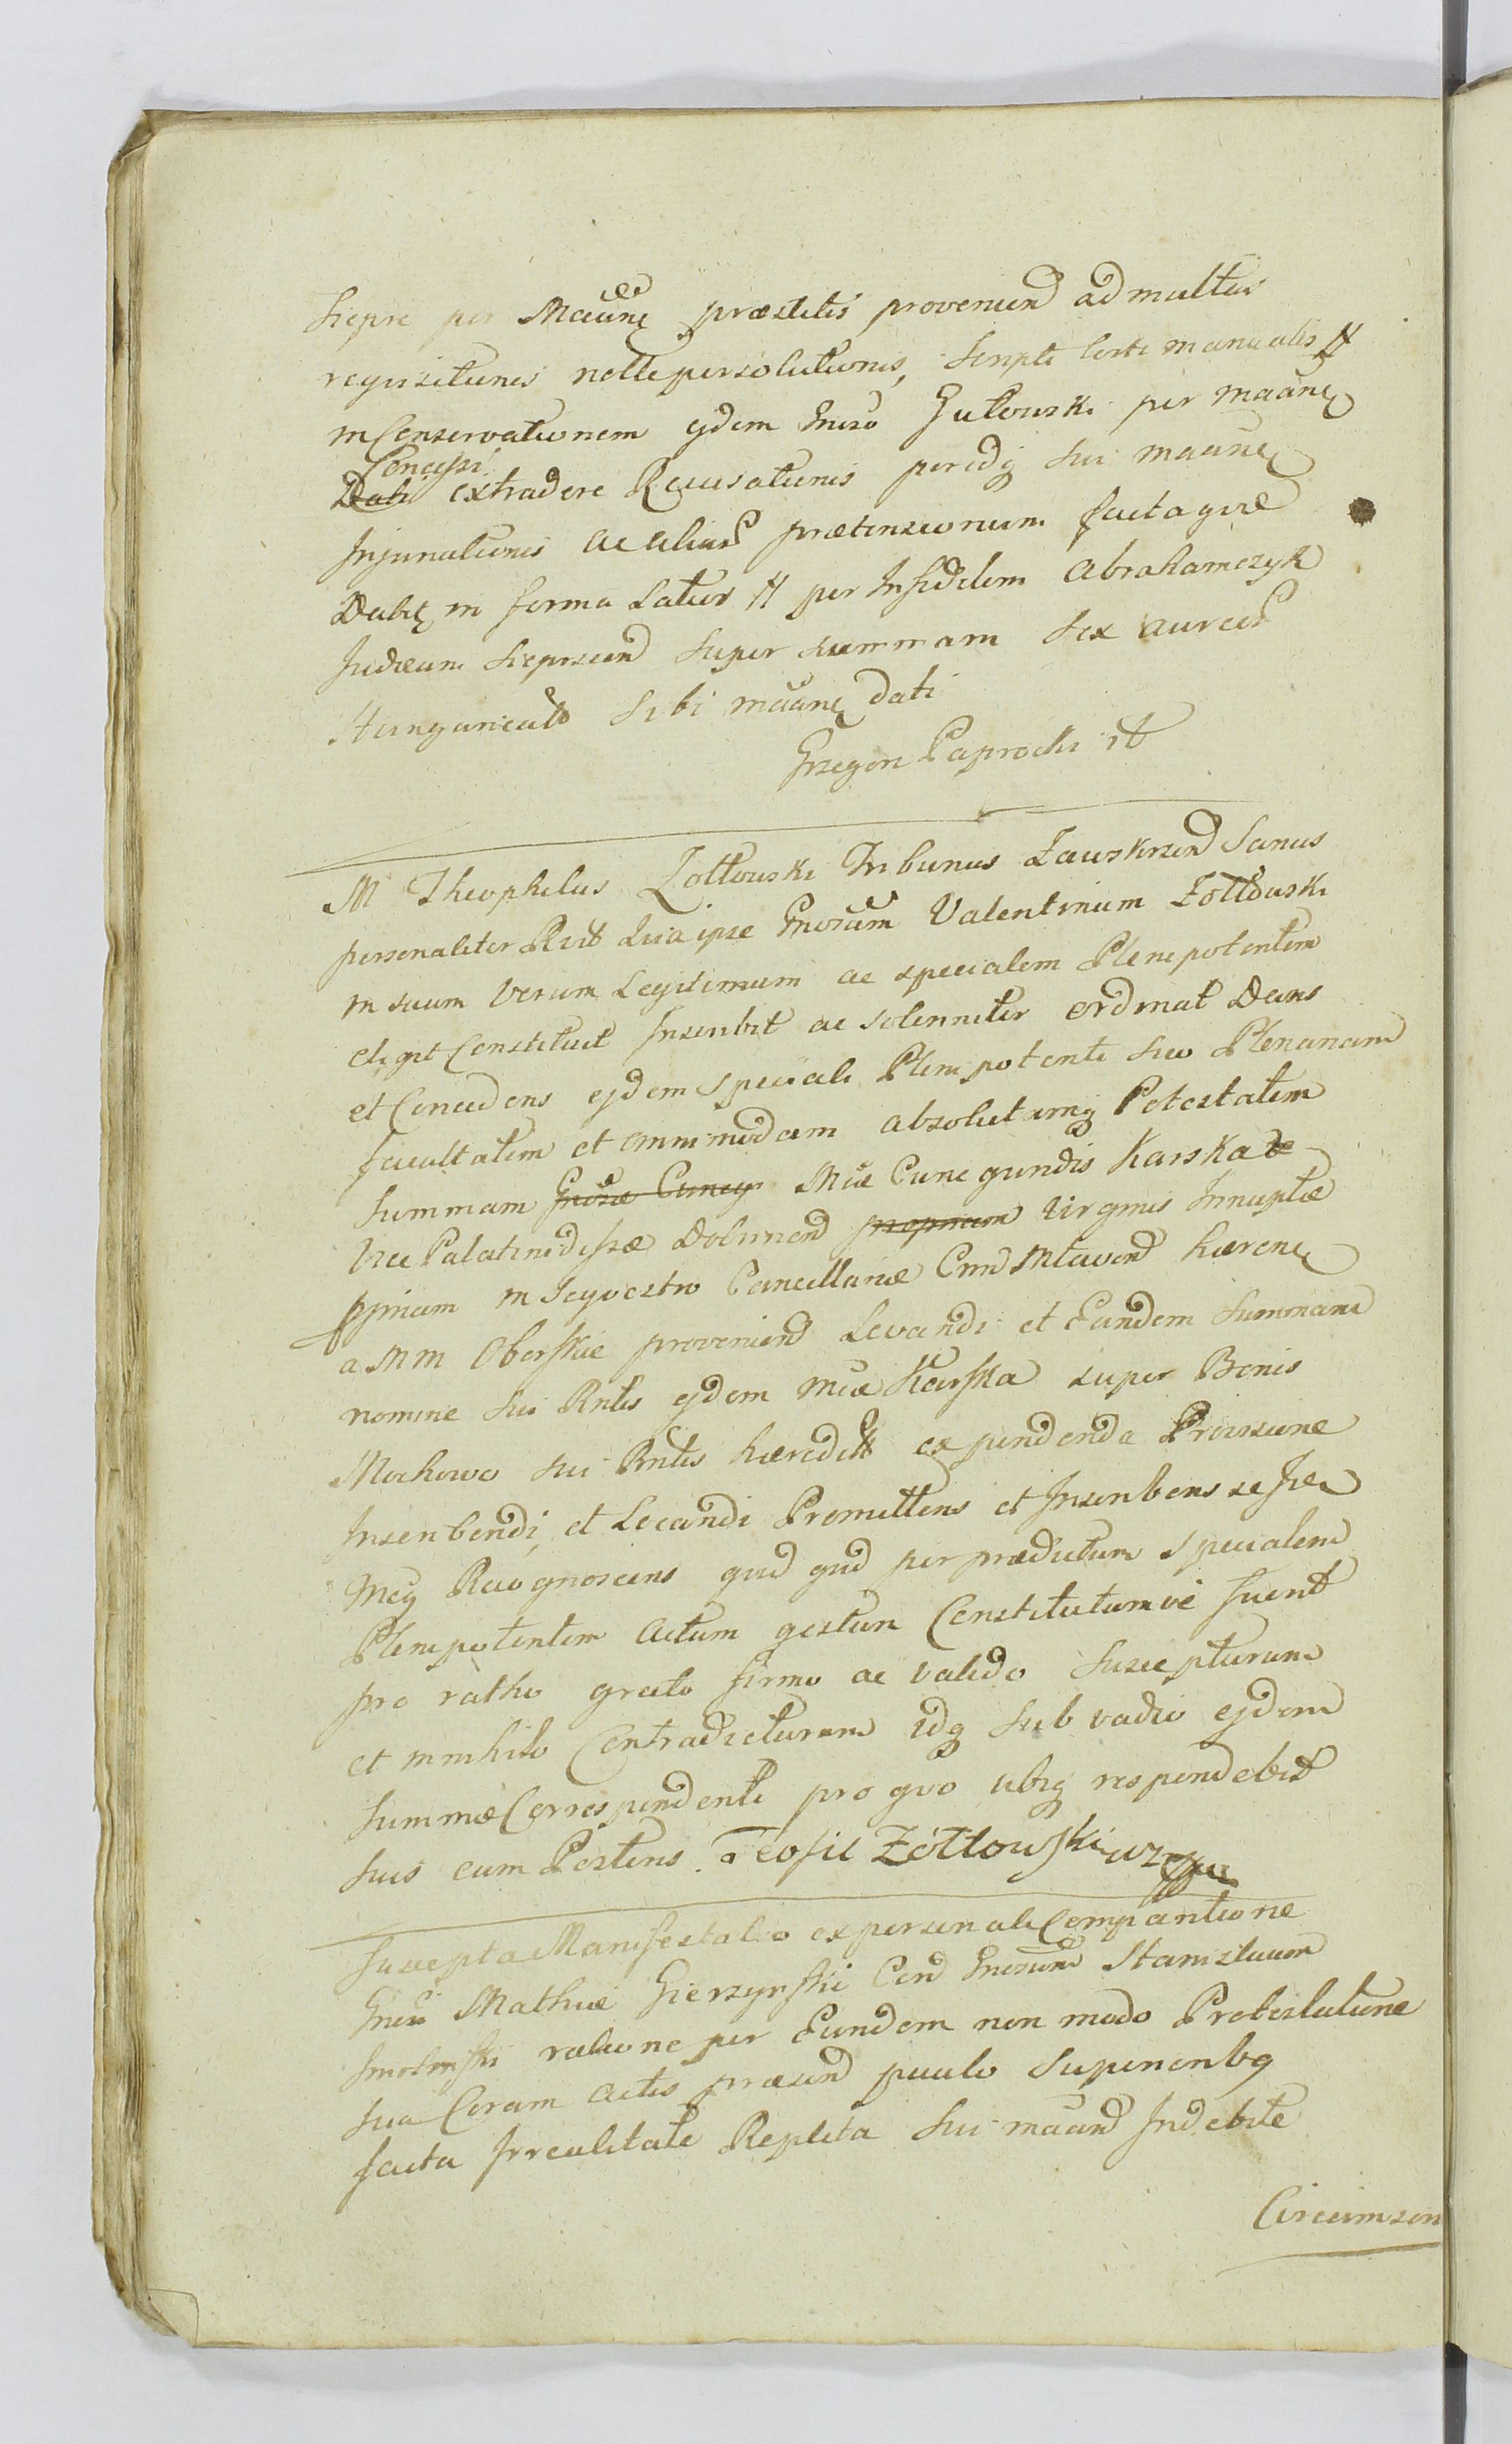 Siepre per Maãne præstitis provenien ad multas
reqvisitiones nolle persolutionis, Scripti certi manualis #
in Conservationem ejdem Gnroso Gutowski per maãne
Concessi
Dati extradere Recusationis peridq sui maãne
Injuriationis ac alias prætensionum facta qvæ
Dabit in forma Latior # per Infidelem Abrahamczyk
Judæum Sieprscen Super summam Sex aureos
Hungaricales sibi maãne dati
Grzegorz Paprocki
M Theophilus Zołtowski Tribunus Zawskrzen Sanus
personaliter Rcit Quia ipse Gnosum Valentinum Zołtowski
in suum Verum Legitimum ac specialem Plenipotentem
eligit Constituit Inscribit ac solenniter ordinat Dans
et Concedens ejdem Speciali Plenipotenti Suo Plenariam
facultatem et omnimodam absolutamq Potestatem
Summam Gnosæ Cuneg Mcæ Cunegundis Karska
Vice Palatinidissæ Dobrinen propriam Virginis Innuptæ
ppriam in Seqvestro Cancellariæ Cnn Mlaven hærene
a MM Oberskie provenien Levandi et Eandem Summam
nomine Sui Rntis ejdem Mcæ Karska super Bonis
Mochowo sui Rntis hæredit expendenda Provisione
Inscribendi, et Locandi Promittens et Inscribens se
Mcq Recognoscens qvid qvid per prædictum Specialem
Plenipotentem actum gestum Constitutumve fuerit
pro ratho grato firmo ac valido Suscepturum
et in nihilo Contradicturum idq Sub vadio ejdem
Summæ Correspondenti pro qvo ubiq respondebit
Suis cum Postens. Teofil Zółtowski
Suscepta Manifestatio ex personali Comparitione
Gnosi Mathiæ Gierzynski Con Gnosum Stanislaum
Smolinski ratione per Eundem non modo Protestatione
sua Coram actis præsen paulo Superioribq
facta Irrealitate Repleta Sui maãn Indebite
Circumscri